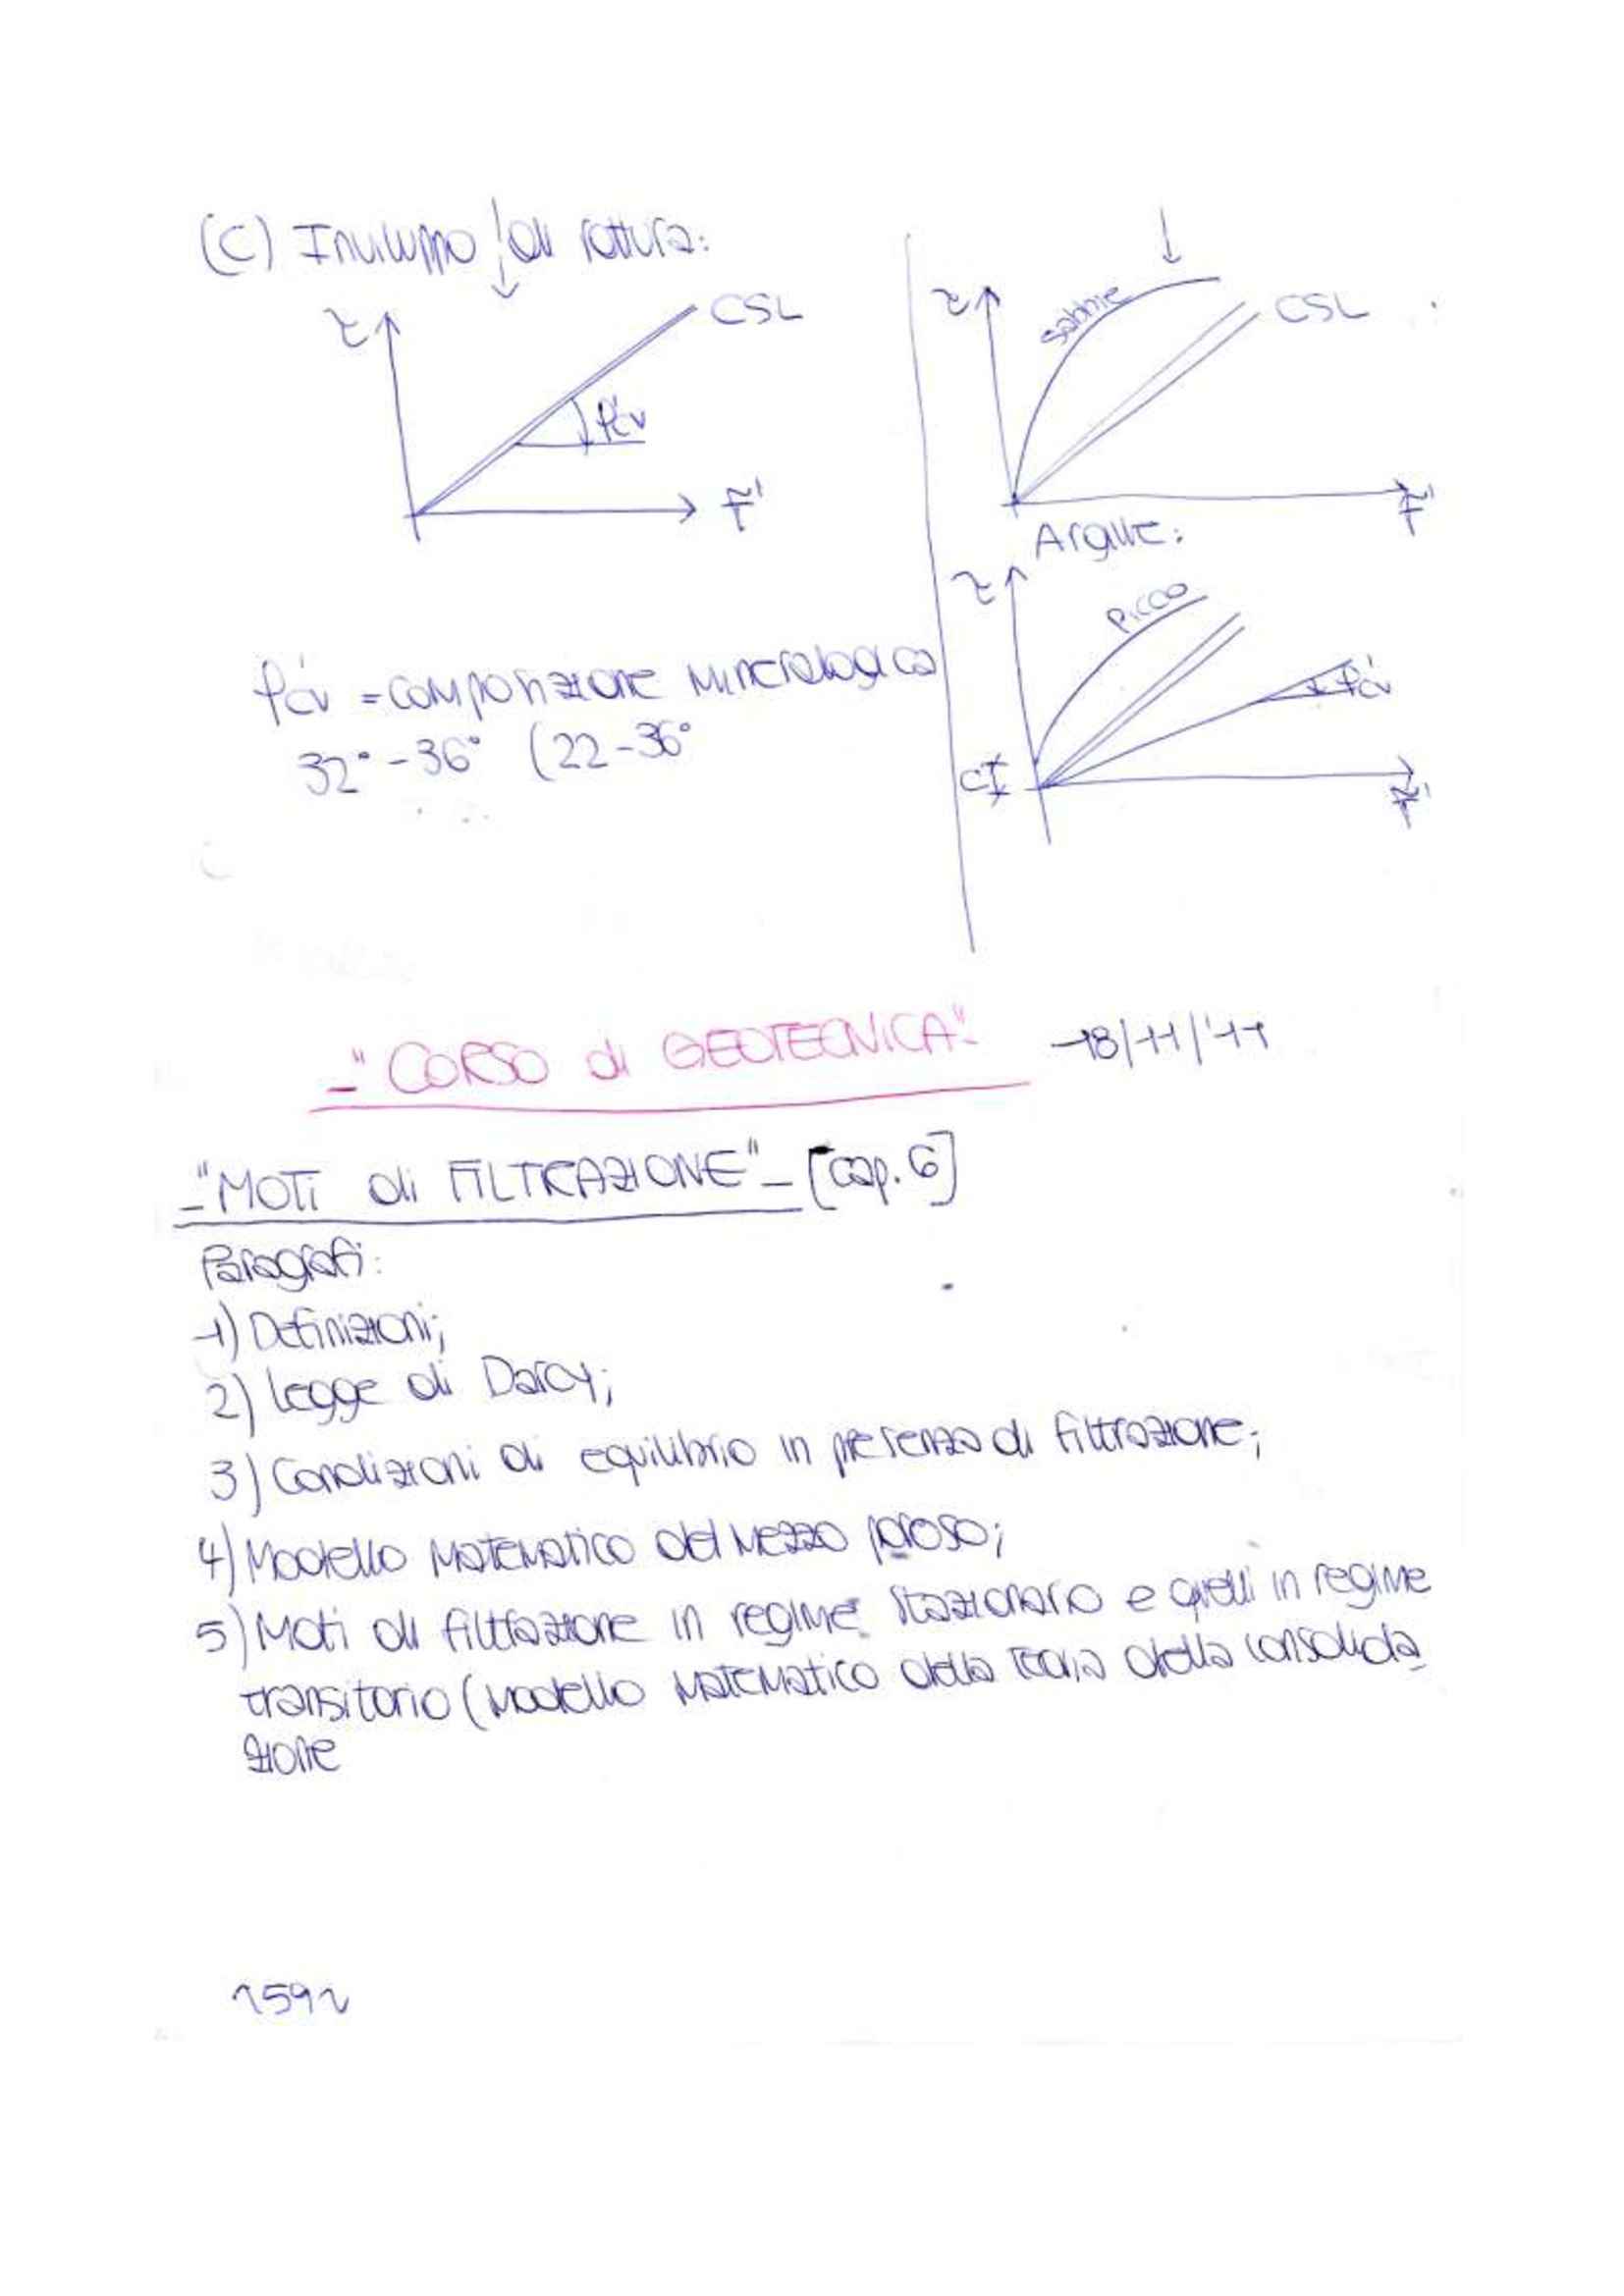 (C) Inviluppo di rottura:
τ
CSL
φ'cv
σ'
φ'cv = composizione mineralogica
32° - 36° (22-36°
τ
sabbie
CSL
σ'
Argille:
τ
picco
φ'cv
c'
σ'
-"CORSO di GEOTECNICA"- 18/11/'11
-"MOTI di FILTRAZIONE"- [cap. 6]
Paragrafi:
1) Definizioni;
2) Legge di Darcy;
3) Condizioni di equilibrio in presenza di filtrazione;
4) Modello matematico del mezzo poroso;
5) Moti di filtrazione in regime stazionario e quelli in regime
transitorio (modello matematico della teoria della consolida
zione
~59~